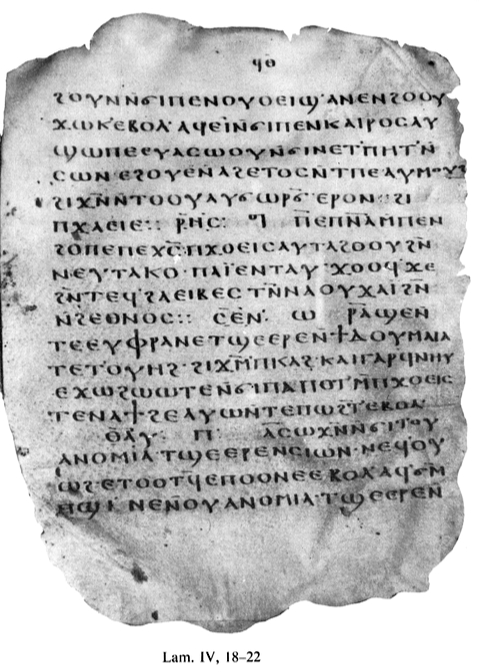 ϥⲑ
ϩⲟⲩⲛⲛ̄ϭⲓⲡⲉⲛⲟⲩⲟⲉⲓϣ·ⲁⲛⲉⲛϩⲟⲟⲩ
ϫⲱⲕⲉⲃⲟⲗ·ⲁϥⲉⲓⲛ̄ϭⲓⲡⲉⲛⲕⲁⲓⲣⲟⲥⲁⲩ
ϣⲱⲡⲉⲉⲩⲁⲥⲱⲟⲩⲛ̄ϭⲓⲛⲉⲧⲡⲏⲧⲛ̄
ⲥⲱⲛⲉϩⲟⲩⲉⲛⲁϩⲉⲧⲟⲥⲛ̄ⲧⲡⲉⲁⲩⲙⲟⲩϩ
ϩⲓϫⲛ̄ⲛⲧⲟⲟⲩⲁⲩϭⲱⲣϭ̄·ⲉⲣⲟⲛ::ϩⲓ
ⲡϫⲁⲓⲉ:: ⲣ̄ⲏⲥ: ϥ̄ ⲡⲉⲡⲛ̄ⲁⲙⲡⲉⲛ
ϩⲟⲡⲉⲡⲉⲭ̄ⲥ̄·ⲡϫⲟⲉⲓⲥⲁⲩⲧⲁϩⲟⲟⲩϩⲛ̄
ⲛⲉⲩⲧⲁⲕⲟ·ⲡⲁⲓ̈ⲉⲛⲧⲁⲩϫⲟⲟϥ·ϫⲉ
ϩⲛ̄ⲧⲉϥϩⲁⲉⲓⲃⲉⲥⲧⲛ̄ⲛⲁⲟⲩϫⲁⲓϩⲛ̄
ⲛ̄ϩⲉⲑⲛⲟⲥ:: ⲥⲉ̄ⲛ· ⲱ ⲣⲁϣⲉⲛ
ⲧⲉⲉⲩⲫⲣⲁⲛⲉⲧϣⲉⲉⲣⲉⲛϯⲇⲟⲩⲙⲁⲓⲁ
ⲧⲉⲧⲟⲩⲏϩ·ϩⲓϫⲙ̄ⲡⲕⲁϩ·ⲕⲁⲓⲅⲁⲣϥⲛⲏⲩ
ⲉϫⲱϩⲱⲱⲧⲉⲛ̄ϭⲓⲡⲁⲡⲟⲧⲙ̄ⲡϫⲟⲉⲓⲥ
ⲧⲉⲛⲁϯϩⲉⲁⲩⲱⲛ̄ⲧⲉⲡⲱϩⲧⲉⲃⲟⲗ
ⲑⲁⲩ: ⲡ̄· ⲁⲥⲱϫⲛⲛ̄ϭⲓⲧⲟⲩ
ⲁⲛⲟⲙⲓⲁ·ⲧϣⲉⲉⲣⲉⲛⲥⲓⲱⲛ·ⲛⲉϥⲟⲩ
ⲱϩⲉⲧⲟⲟⲧϥⲉⲡⲟⲟⲛⲉⲉⲃⲟⲗⲁϥϭⲙ̄
ⲡϣⲓⲛⲉⲛ̄ⲟⲩⲁⲛⲟⲙⲓⲁ·ⲧϣⲉⲉⲣⲉⲛ̄
Lam. IV, 18–22